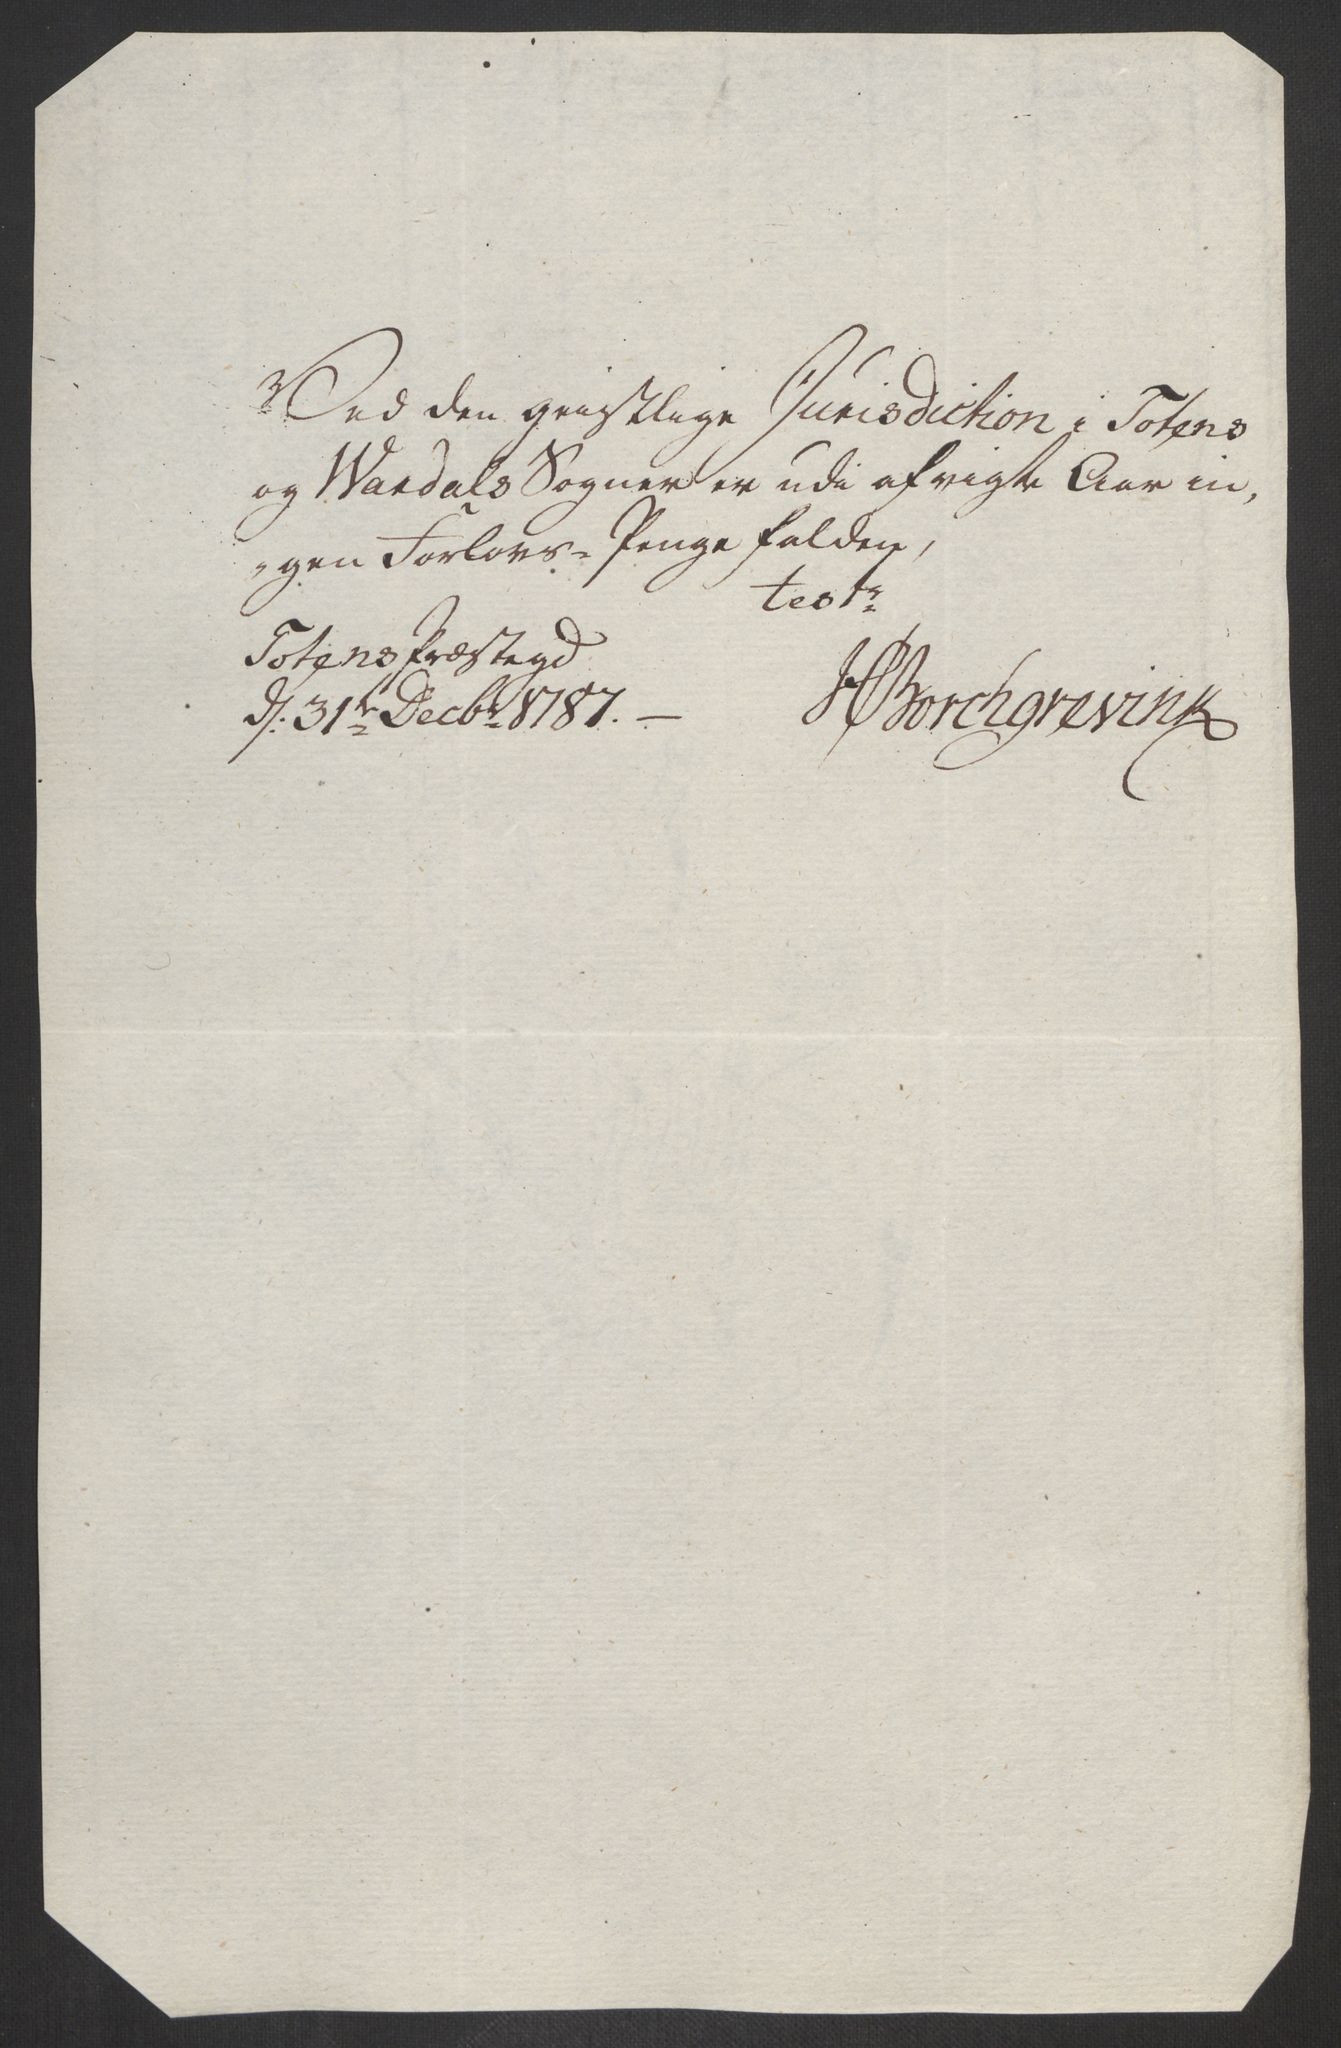 Ved den geistlige Jurisdiction i Totens
og Wardals Sogner er udi afvigte Aar in,
,gen Forlovs- Penge falden,
test:
Totens Præstegd
d: 31te Decbr 1787. —
HCBorchgrevink